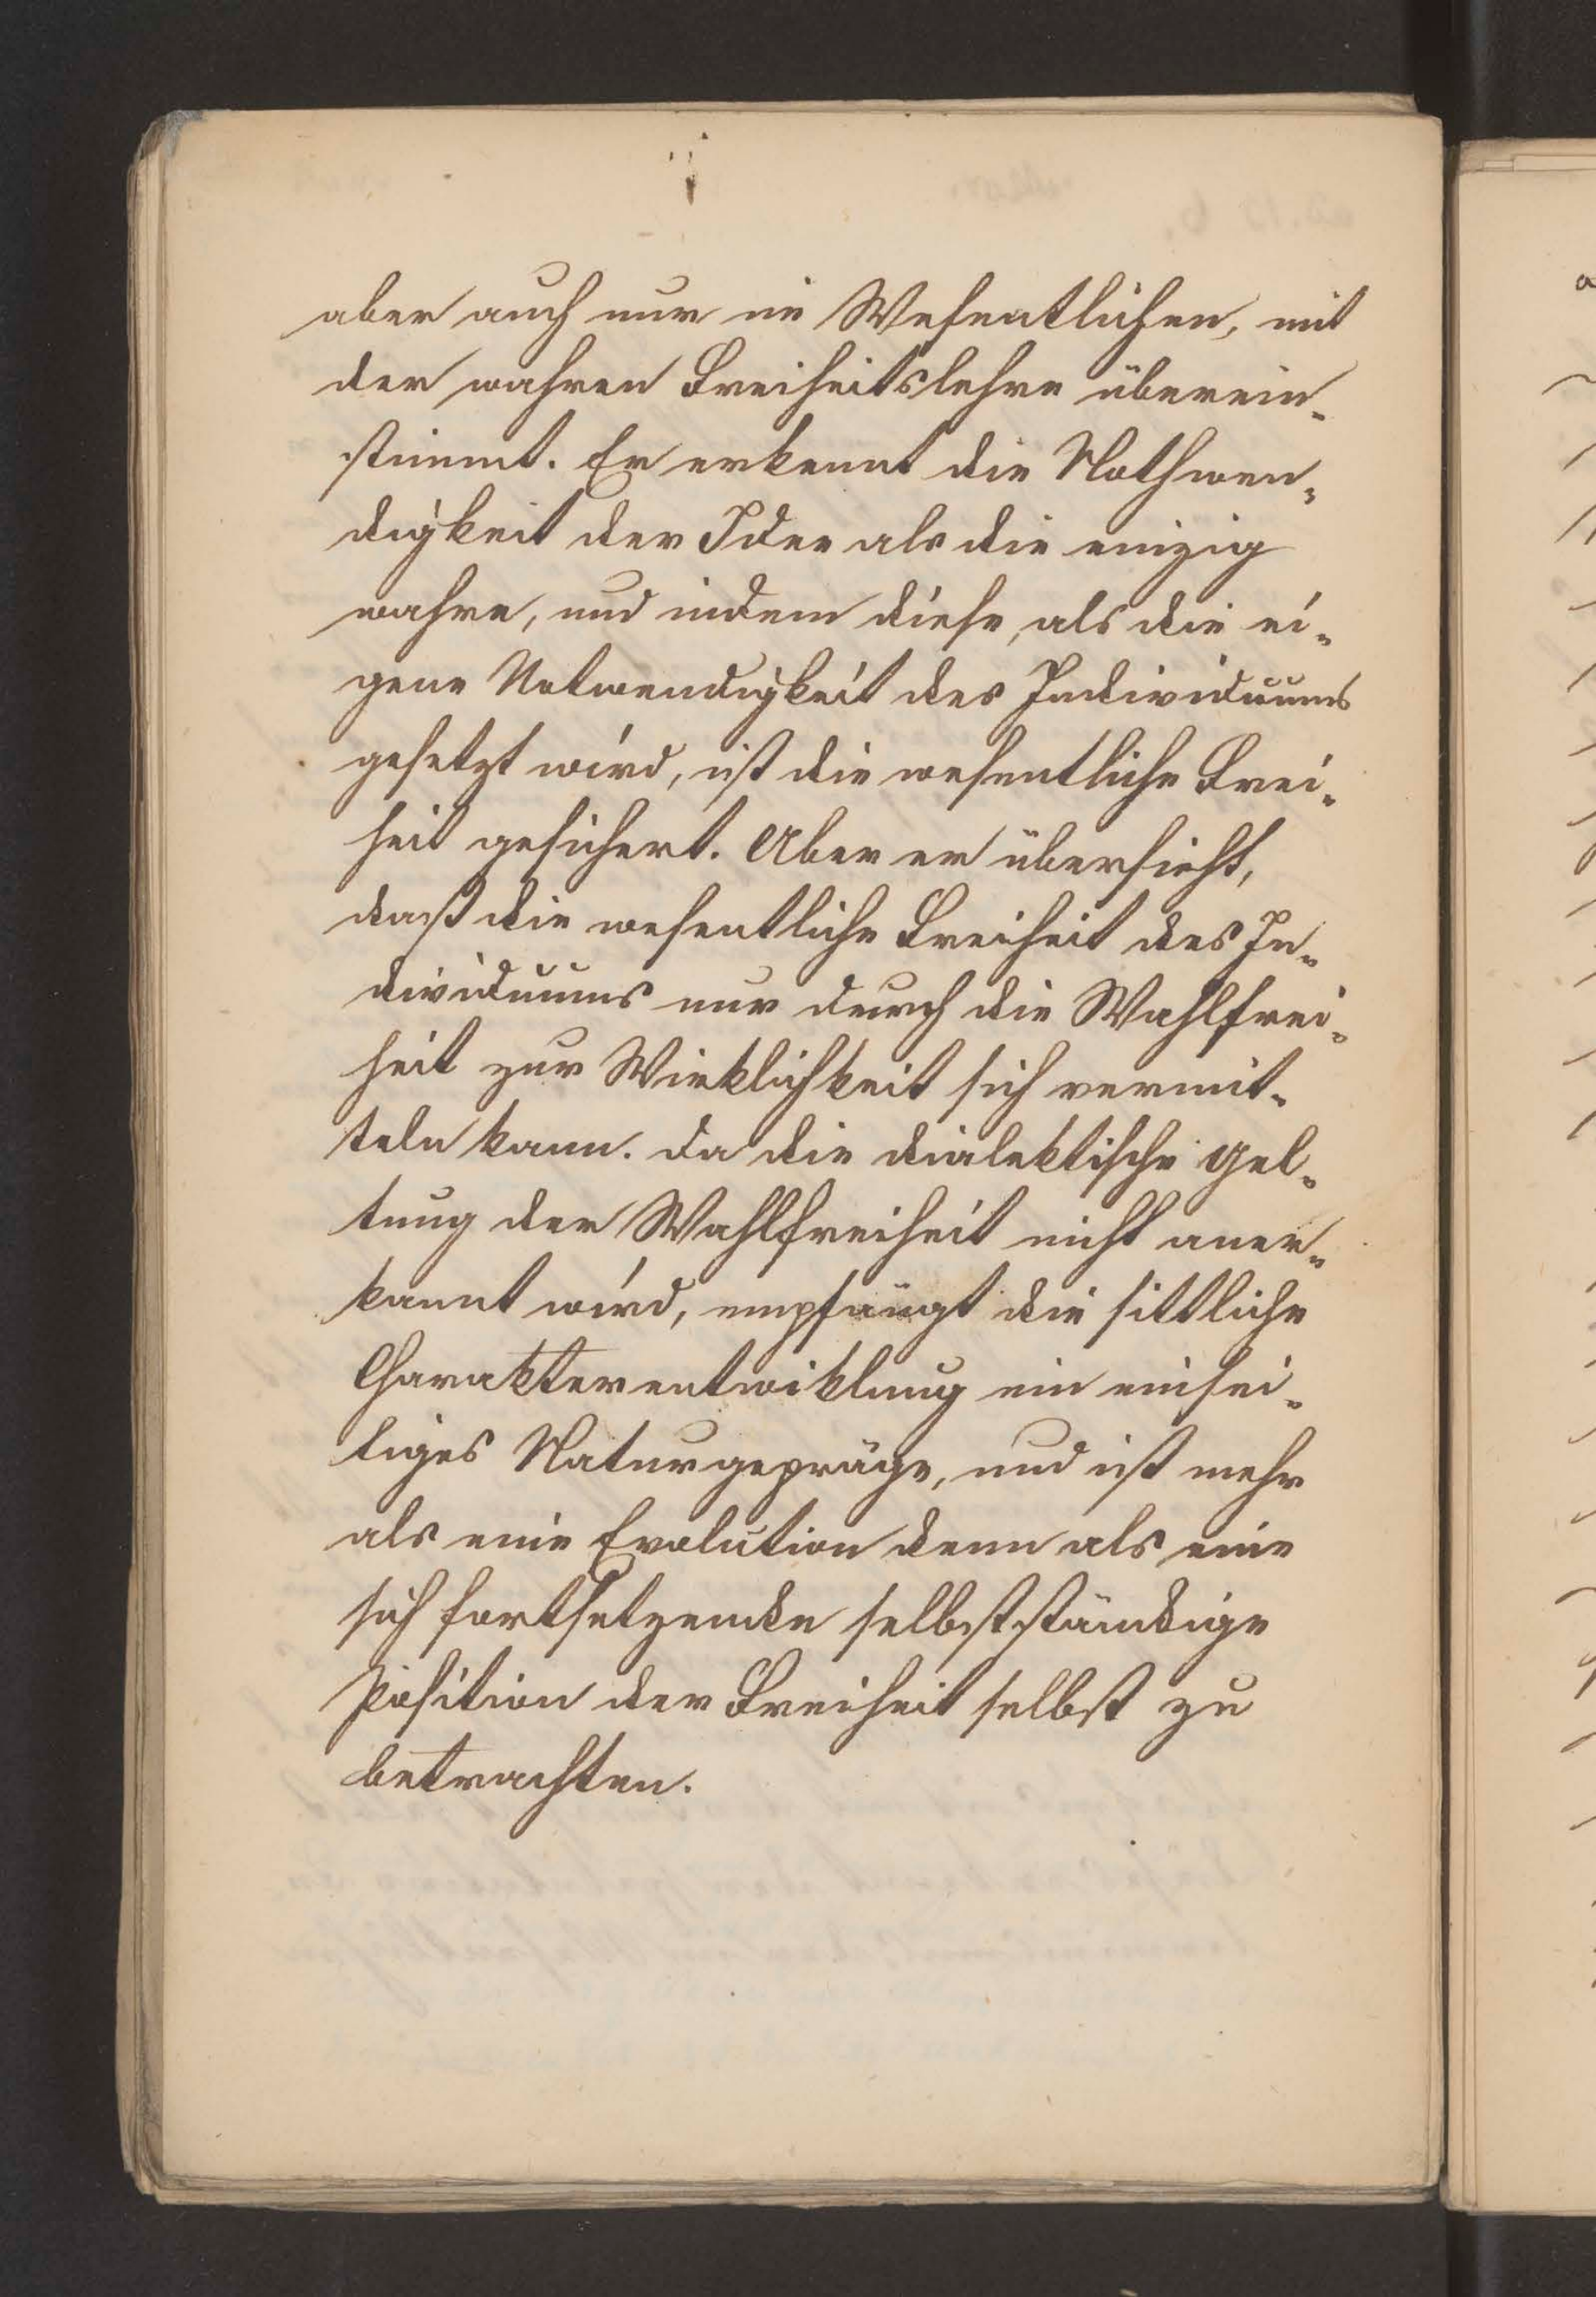 aber auch nur im Wesentlichen, mit
der wahren Freiheitslehre überein-
stimmt. Er erkennt die Nothwen-
digkeit der Idee als die einzig
wahre, und indem diese, als die ei-
gene Notwendigkeit des Individuums
gesetzt wird, ist die wesentliche Frei-
heit gesichert. Aber er übersieht,
daß die wesentliche Freiheit des In-
dividuums nur durch die Wahlfrei-
heit zur Wirklichkeit sich vermit-
teln kann. Da die dialektische Gel-
tung der Wahlfreiheit nicht aner-
kannt wird, empfängt die sittliche
Charakterentwiklung ein einsei-
tiges Naturgepräge, und ist mehr
als eine Evolution denn als eine
sich fortsetzende selbstständige
Position der Freiheit selbst zu
betrachten.